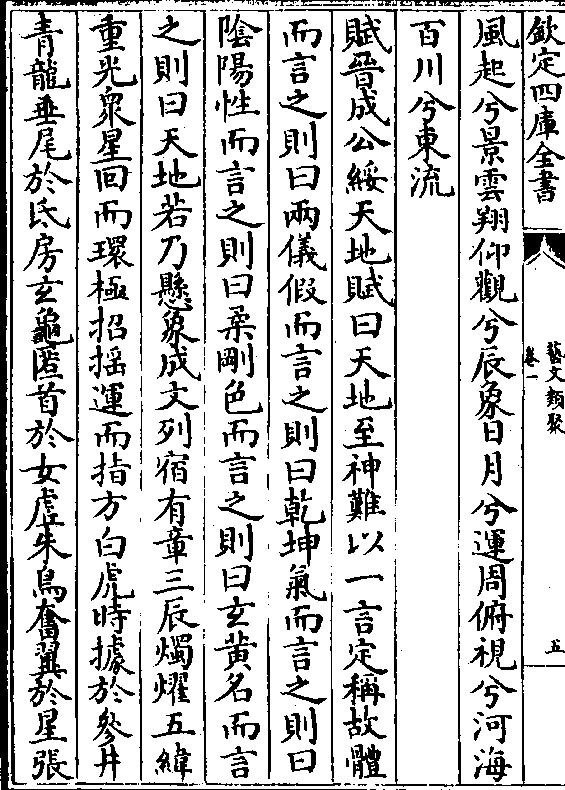 欽定四庫全書
藝文類聚
卷一
五
風起兮景雲翔仰觀兮辰象日月兮運周俯視兮河海
百川兮東流
賦晉成公綏天地賦曰天地至神難以一言定稱故體
而言之則曰兩儀假而言之則曰乾坤氣而言之則曰
陰陽性而言之則曰柔剛色而言之則曰玄黃名而言
之則曰天地若乃懸象成文列宿有章三辰燭耀五緯
重光衆星回而環極招揺運而指方白虎時據於參井
青龍垂尾於氐房玄龜匿首於女虛朱鳥奮翼於星張